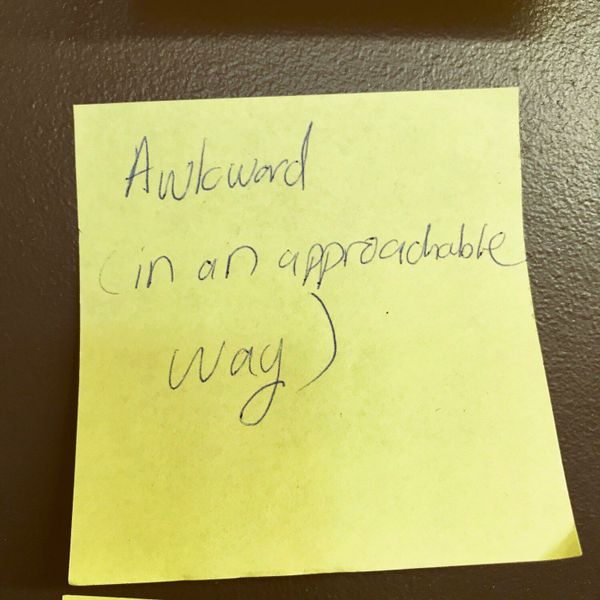 Awkward
(in an approachable
way)